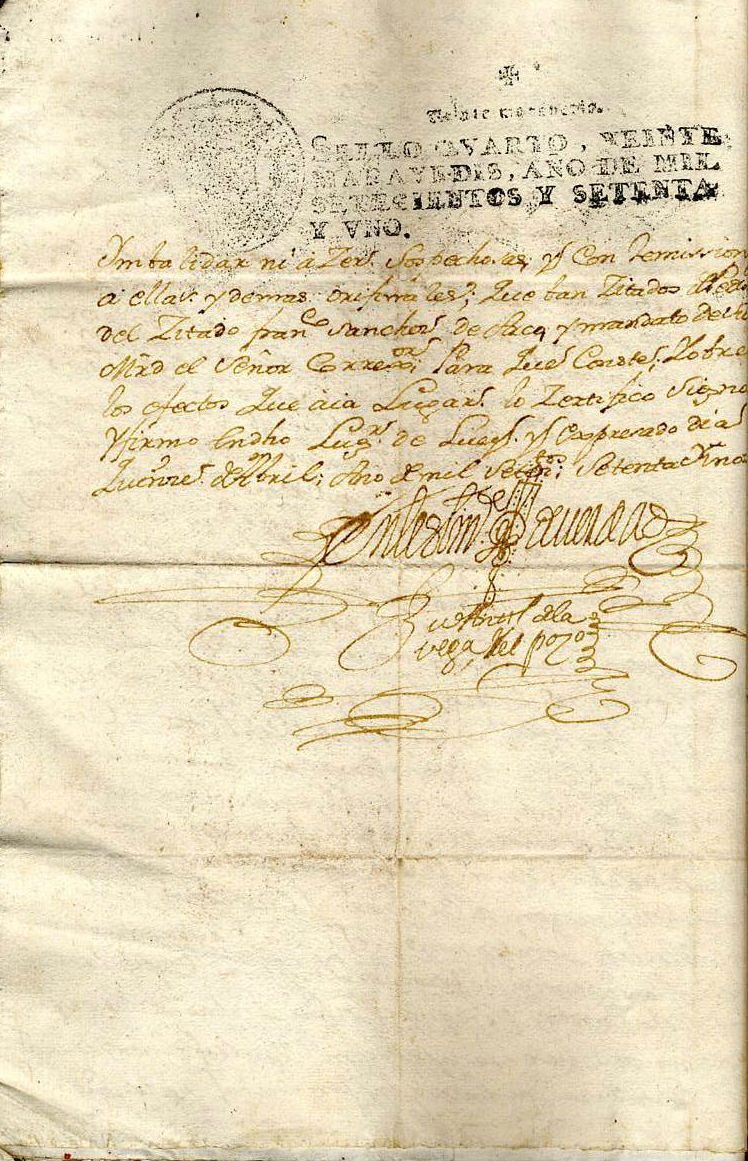 ✠
Veinte maravedis.
SELLO QVARTO, VEINTE
MARAVEDIS, AÑO DE MIL
SETECIENTOS Y SETENTA
Y VNO.
Ymbalidar ni aZer Sospechosas, y Con Remission
a ellas y demas orixinales, que ban Zitados
del Zitado franco Sanchez de y mandato de
Mrd el Señor Correxor; Para que Conste, Y obre
los efectos que aia Lugar lo Zertifico Signo
Y firmo Endho Lugr de y expresado dia
quinze de Abril; Año de mil Setezos Setenta Y uno
En testim de Verdad
de la
vega, del pozo